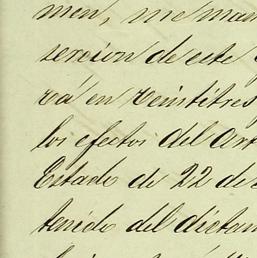 men, me man
sercion de este
rá en veintitres
los efectos del art
Estado de 22 de
tenido del dictam